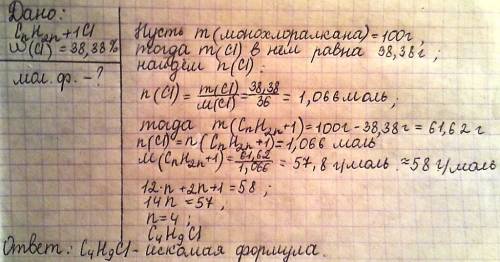 Дано:
CnH2n+1Cl
ω(Cl) = 38,38%
мол. ф. - ?
Пусть m (монохлоралкана) = 100г,
тогда m(Cl) в нем равна 38,38г;
найдём n(Cl):
n(Cl) = m(Cl)/M(Cl) = 38,38/36 = 1,066 моль;
тогда m(CnH2n+1) = 100г - 38,38г = 61,62 г
n(Cl) = n(CnH2n+1) = 1,066 моль
M(CnH2n+1) = 61,62/1,066 = 57,8 г/моль ≈ 58 г/моль
12·n + 2n + 1 = 58;
14n = 57,
n = 4;
C4H9Cl
Ответ: C4H9Cl - искомая формула.